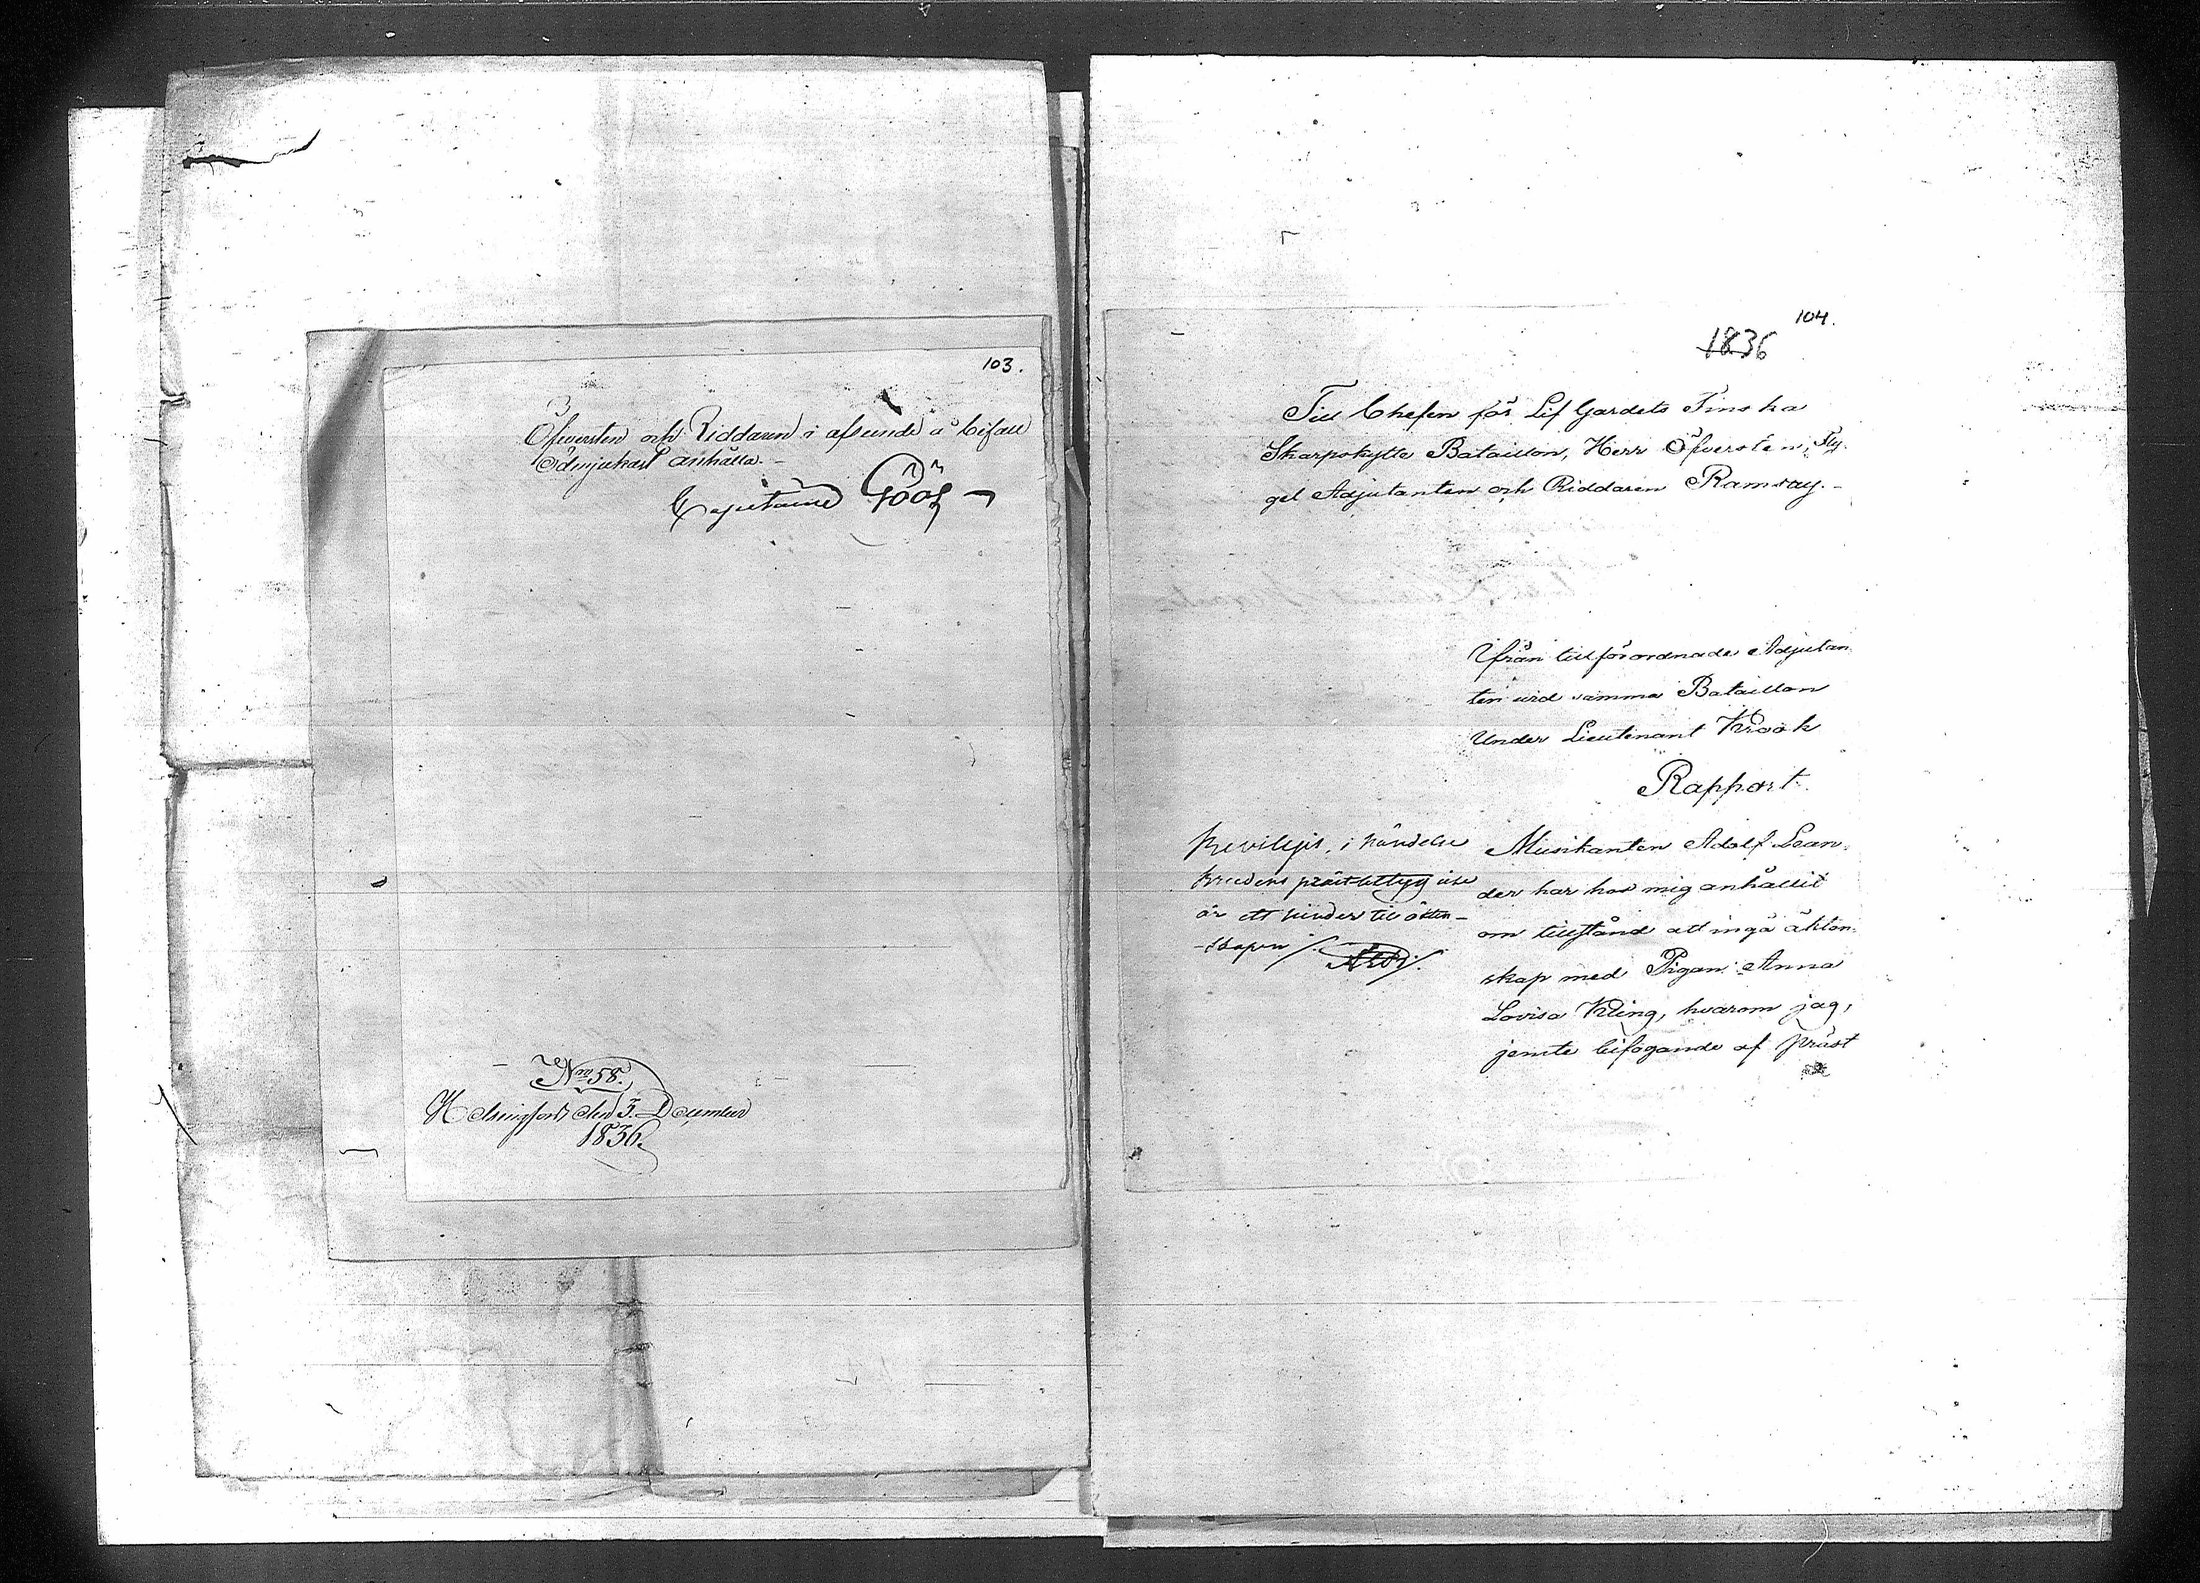 103.
Öfversten och Riddaren i afseende å bifall
ödmjukast anhålla.-
Capitaine Göös
Nro 58.
Helsingfors den 3. December
1836.
104.
1836
Till Chefen för Lif Gardets Finska
Skarpskytte Bataillon, Herr Öfversten, Fly-
gel Adjutanten och Riddaren Ramsay.-
Ifrån tillförordnade Adjutan
ten vid samma Bataillon
Under Lieutenant Krook
Rapport.
Musikanten Adolf Lean-
der har hos mig anhållit
om tillstånd att ingå äkten-
skap med Pigan Anna
Lovisa Kling, hvarom jag,
jemte bifogande af präst
Beviljes, i händelse
Brudens präst-bettyg icke
är ett hinder till äkten-
-skapen /.